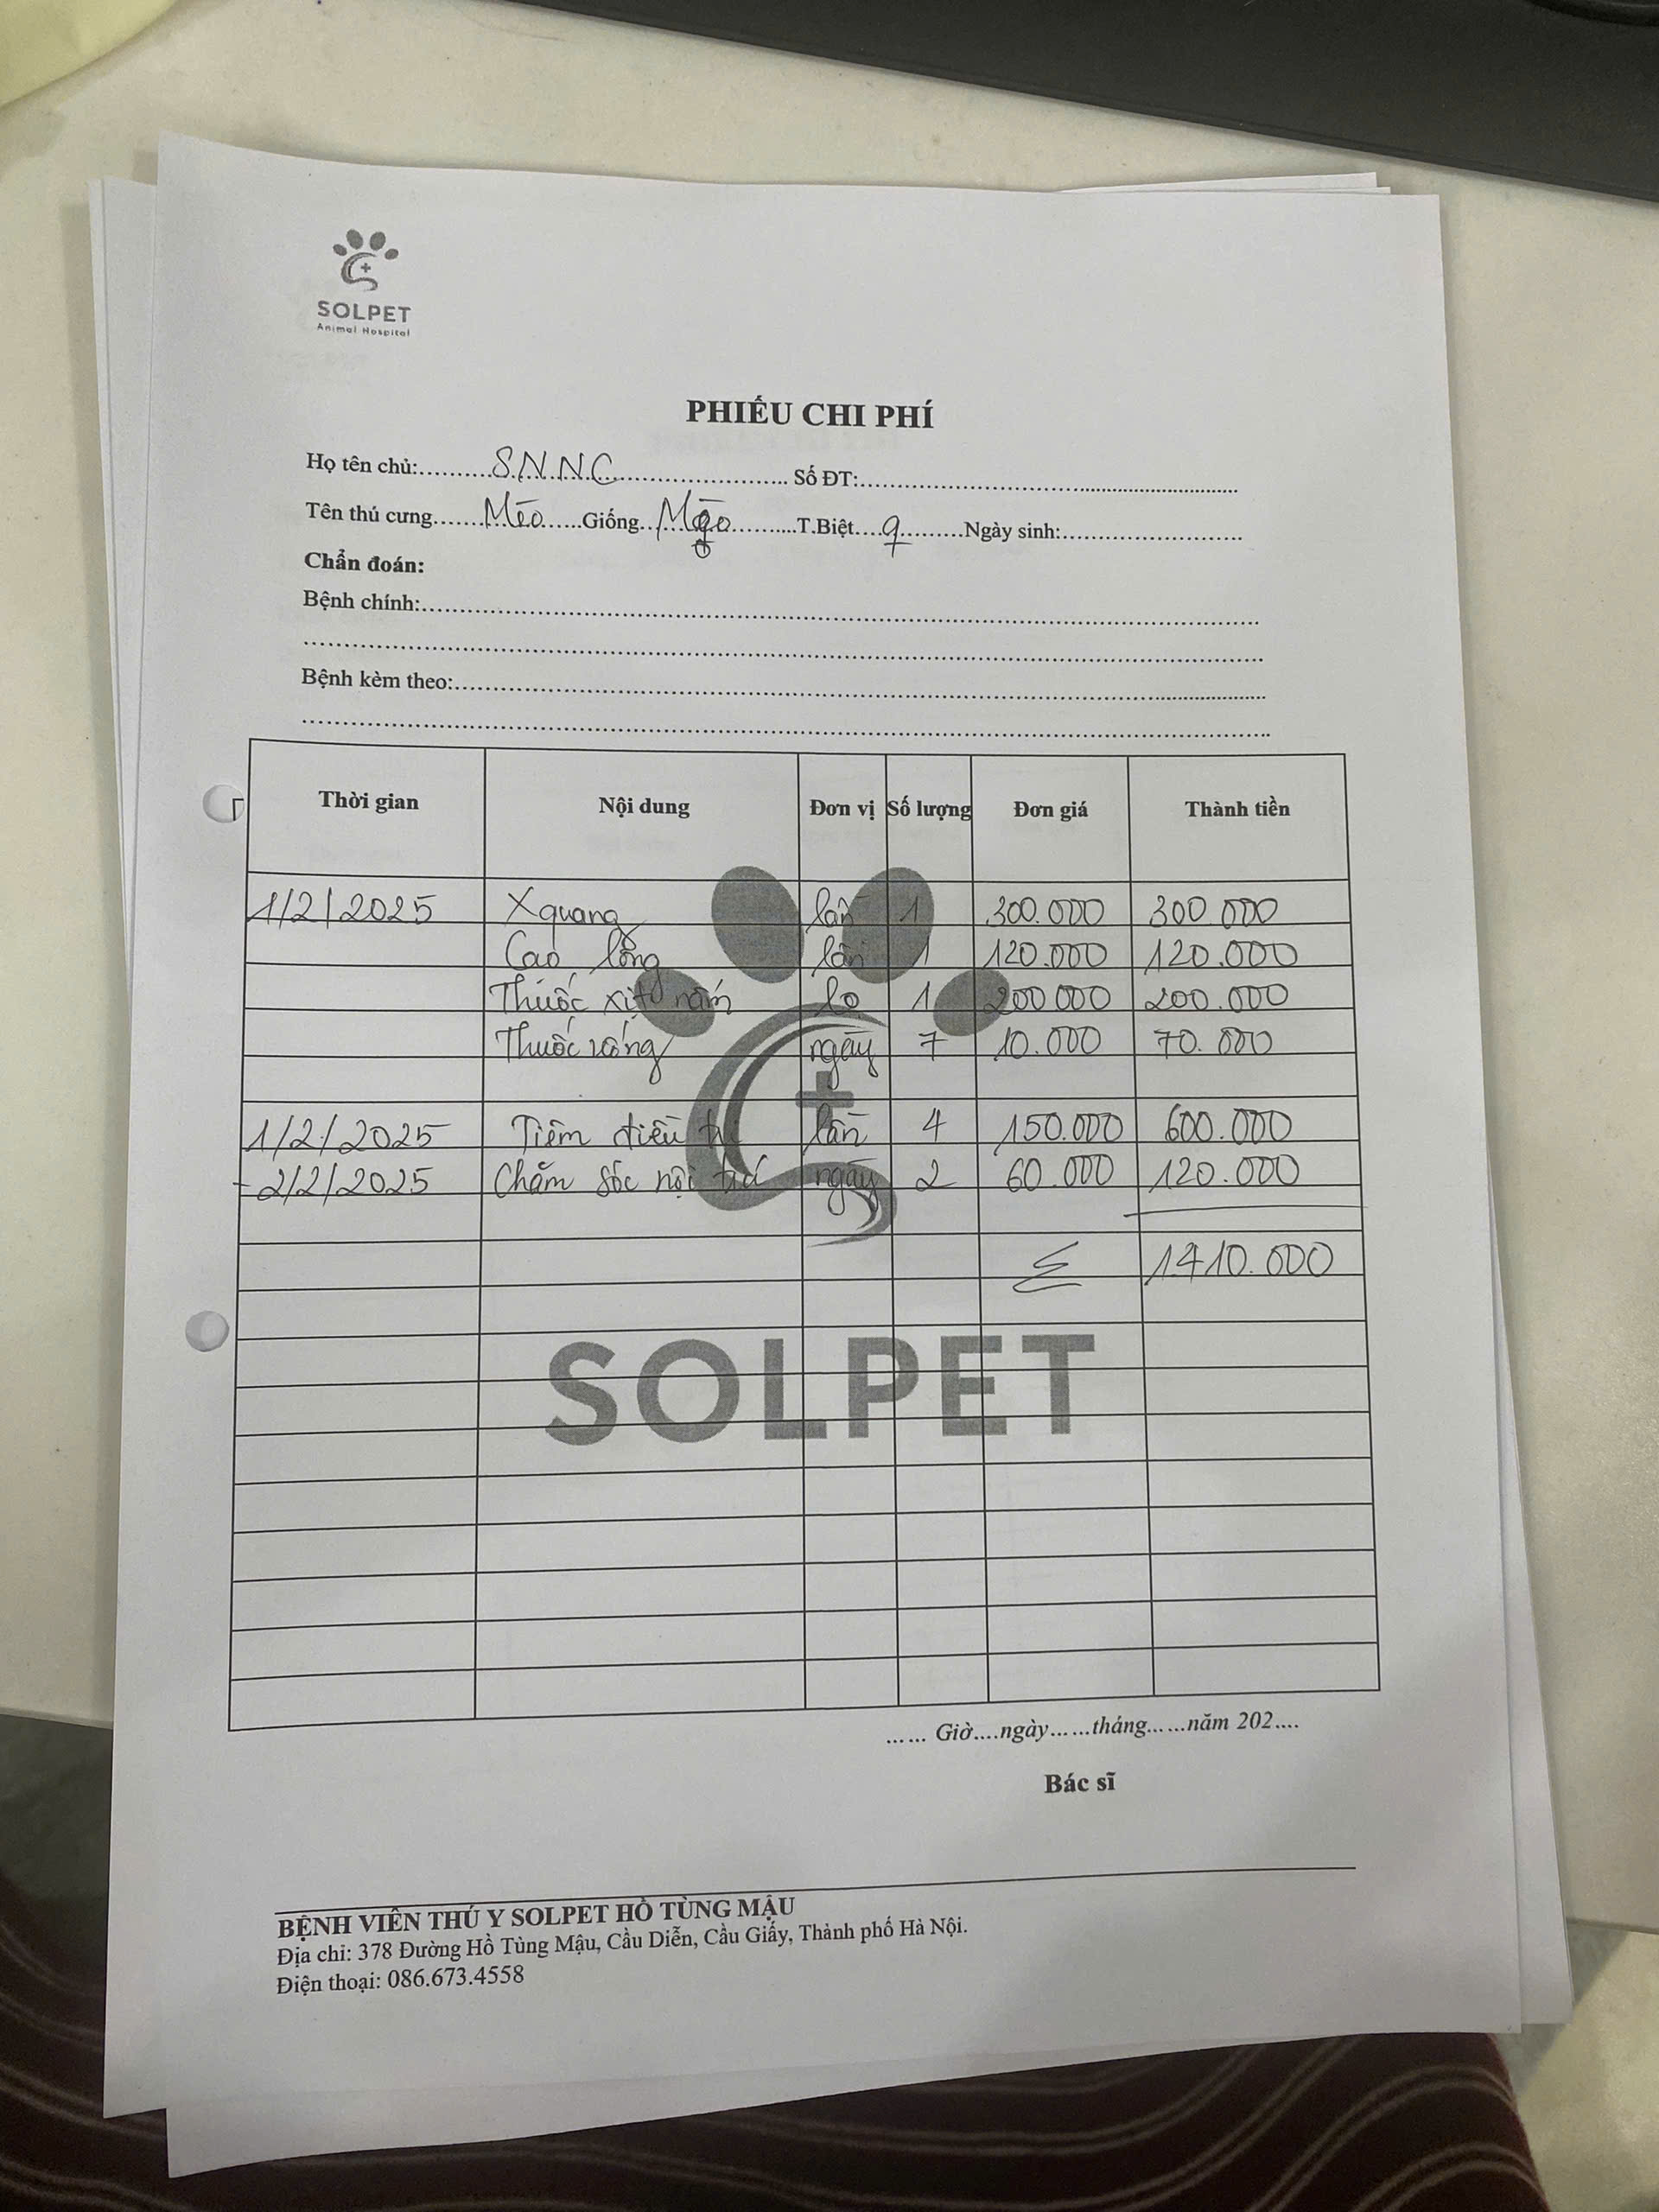 SOLPET
Animal Hospital
PHIẾU CHI PHÍ
Họ tên chủ:..........S.N.N.C............................ Số ĐT:..........................................................
Tên thú cưng.......Mèo......Giống...Mèo..........T.Biệt....♀.........Ngày sinh:............................
Chẩn đoán:
Bệnh chính:..........................................................................................
Bệnh kèm theo:..........................................................................................
Thời gian Nội dung Đơn vị Số lượng Đơn giá Thành tiền
1/2/2025 Xquang lần 1 300.000 300.000
Cạo lông lần 1 120.000 120.000
Thuốc xịt nấm lọ 1 200.000 200.000
Thuốc uống ngày 7 10.000 70.000
1/2/2025 Tiêm điều trị lần 4 150.000 600.000
- 2/2/2025 Chăm sóc nội trú ngày 2 60.000 120.000
Σ 1.410.000
SOLPET
...... Giờ....ngày......tháng......năm 202....
Bác sĩ
BỆNH VIÊN THÚ Y SOLPET HỒ TÙNG MẬU
Địa chỉ: 378 Đường Hồ Tùng Mậu, Cầu Diễn, Cầu Giấy, Thành phố Hà Nội.
Điện thoại: 086.673.4558